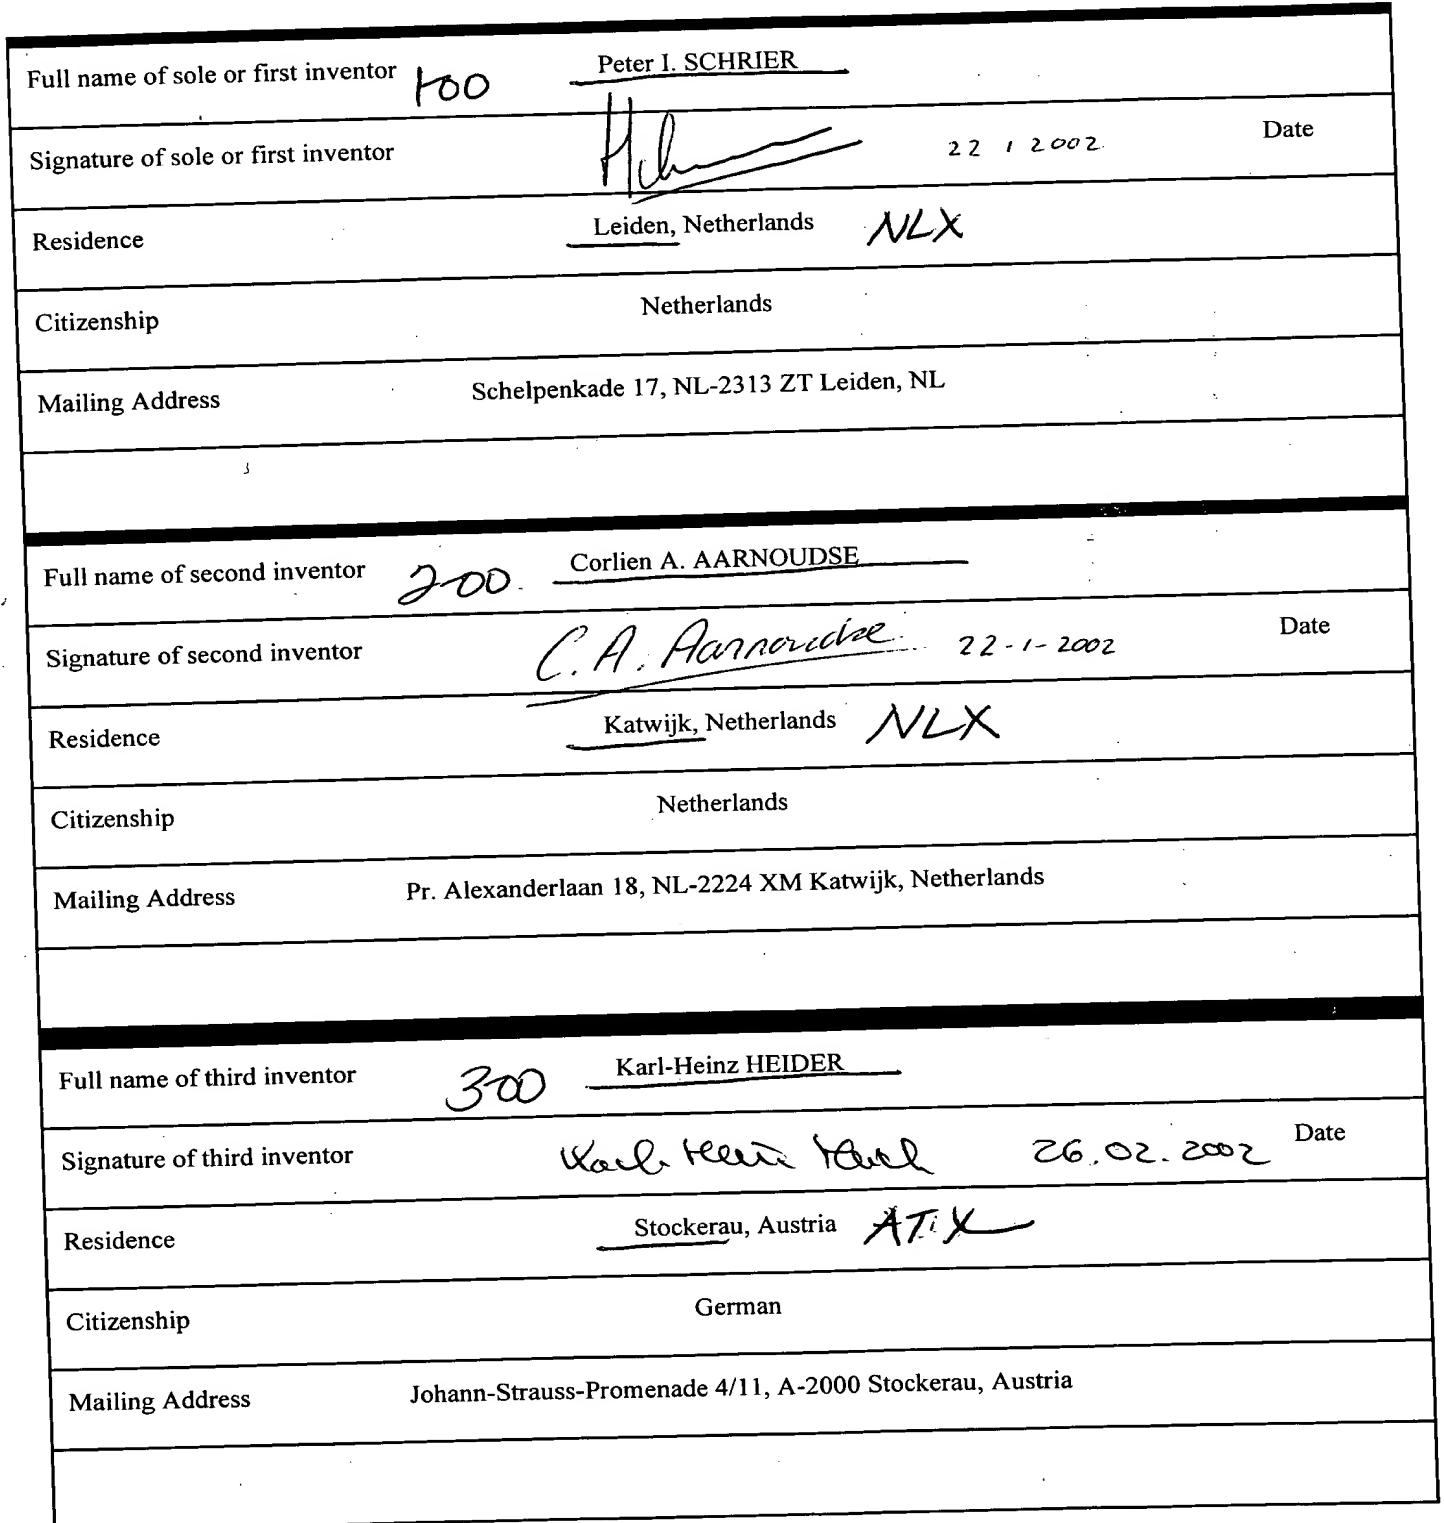 Full name of sole or first inventor 100 Peter I. SCHRIER
Signature of sole or first inventor 22 1 2002 Date
Residence Leiden, Netherlands NLX
Citizenship Netherlands
Mailing Address Schelpenkade 17, NL-2313 ZT Leiden, NL
Full name of second inventor 200 Corlien A. AARNOUDSE
Signature of second inventor C. A. Aarnoudse 22-1-2002 Date
Residence Katwijk, Netherlands NLX
Citizenship Netherlands
Mailing Address Pr. Alexanderlaan 18, NL-2224 XM Katwijk, Netherlands
Full name of third inventor 300 Karl-Heinz HEIDER
Signature of third inventor 26.02.2002 Date
Residence Stockerau, Austria ATX
Citizenship German
Mailing Address Johann-Strauss-Promenade 4/11, A-2000 Stockerau, Austria